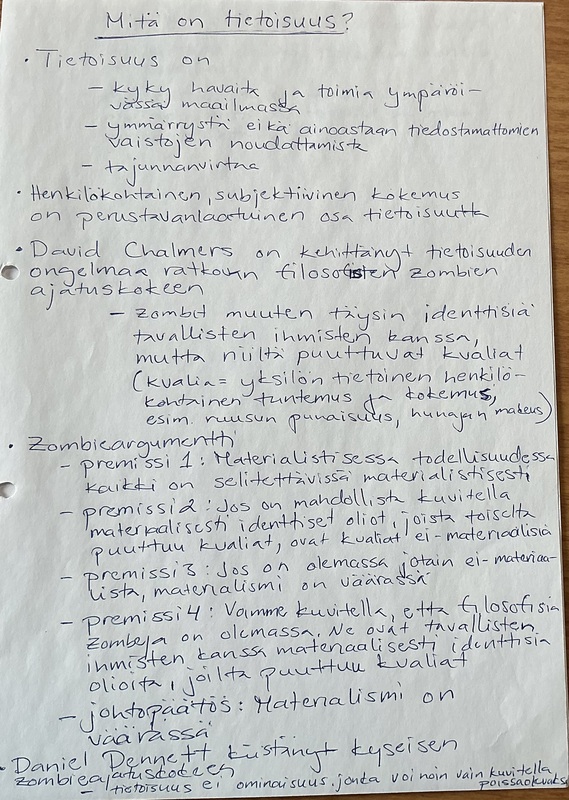 Mitä on tietoisuus?
• Tietoisuus on
– kyky havaita ja toimia ympäröi-
vässä maailmassa
– ymmärrystä eikä ainoastaan tiedostamattomien
vaistojen noudattamista
– tajunnanvirtaa
• Henkilökohtainen, subjektiivinen kokemus
on perustavanlaatuinen osa tietoisuutta
• David Chalmers on kehittänyt tietoisuuden
ongelmaa ratkovan filosofisten zombien
ajatuskokeen
– zombit muuten täysin identtisiä
tavallisten ihmisten kanssa,
mutta niiltä puuttuvat kvaliat
(kvalia = yksilön tietoinen henkilö-
kohtainen tuntemus ja kokemus,
esim. ruusun punaisuus, hunajan makeus)
• Zombieargumentti
– premissi 1: Materialistisessa todellisuudessa
kaikki on selitettävissä materialistisesti
– premissi 2: Jos on mahdollista kuvitella
materiaalisesti identtiset oliot, joista toiselta
puuttuu kvaliat, ovat kvaliat ei-materiaalisia
– premissi 3: Jos on olemassa jotain ei-materiaa-
lista, materialismi on väärässä
– premissi 4: Voimme kuvitella, että filosofisia
zombeja on olemassa. Ne ovat tavallisten
ihmisten kanssa materiaalisesti identtisiä
olioita, joilta puuttuu kvaliat
– johtopäätös: Materialismi on
väärässä
• Daniel Dennett kiistänyt kyseisen
zombieajatuskokeen
– tietoisuus ei ominaisuus, jonka voi noin vain kuvitella